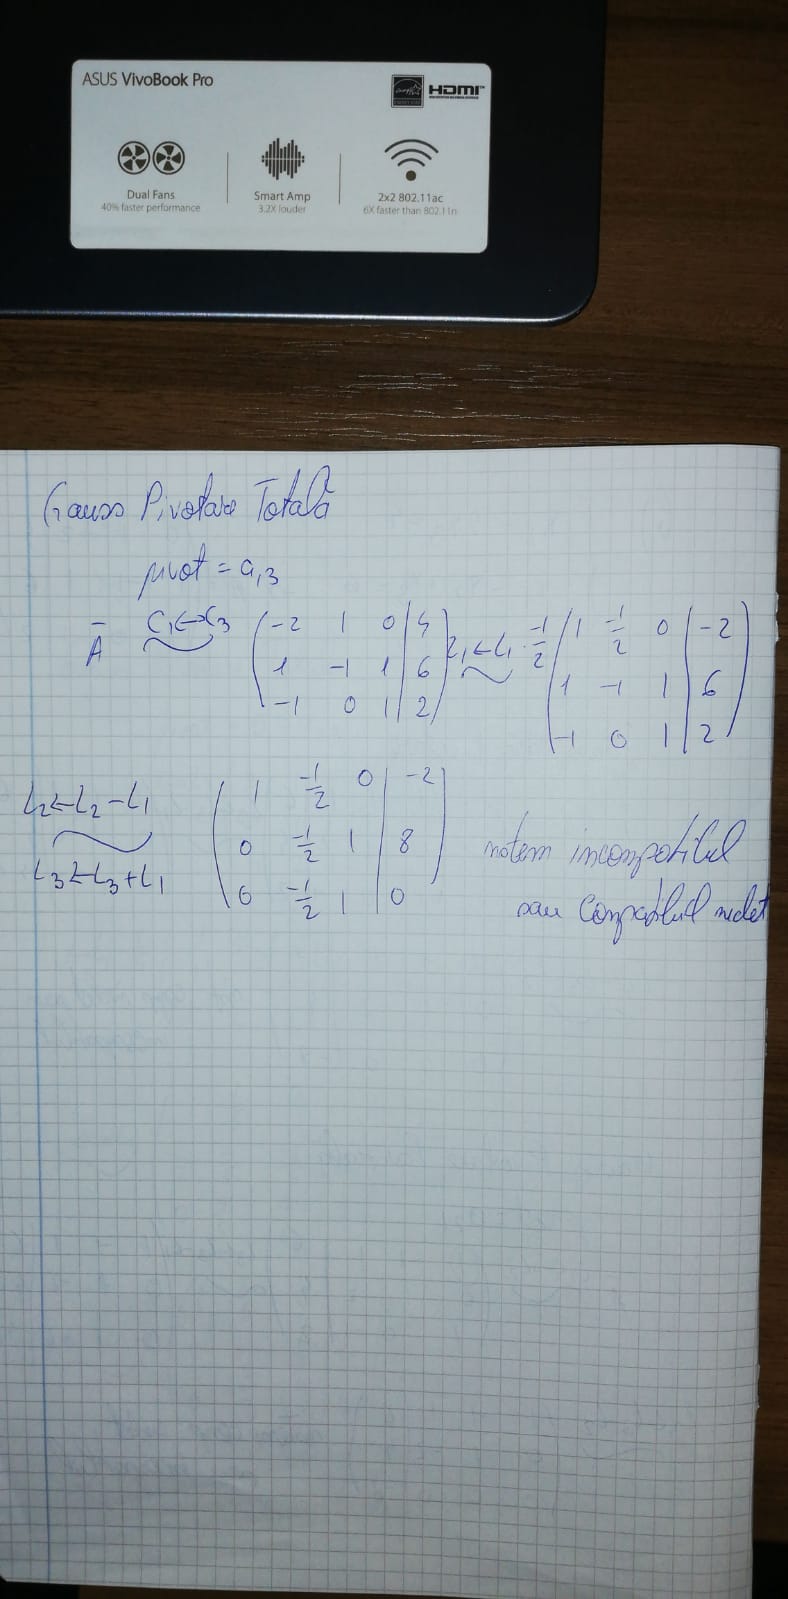 ASUS VivoBook Pro
HDMI
Dual Fans
40% faster performance
Smart Amp
3.2X louder
2x2 802.11ac
6X faster than 802.11n
Gauss Pivotare Totală
pivot = a13
Ā C1↔C3 (-2 1 0 | 4) L1←L1·-1/2 (1 -1/2 0 | -2)
(1 -1 1 | 6) (1 -1 1 | 6)
(-1 0 1 | 2) (-1 0 1 | 2)
L2←L2-L1 (1 -1/2 0 | -2)
L3←L3+L1 (0 -1/2 1 | 8) incompatibil
(0 -1/2 1 | 0) sau compatibil nedet